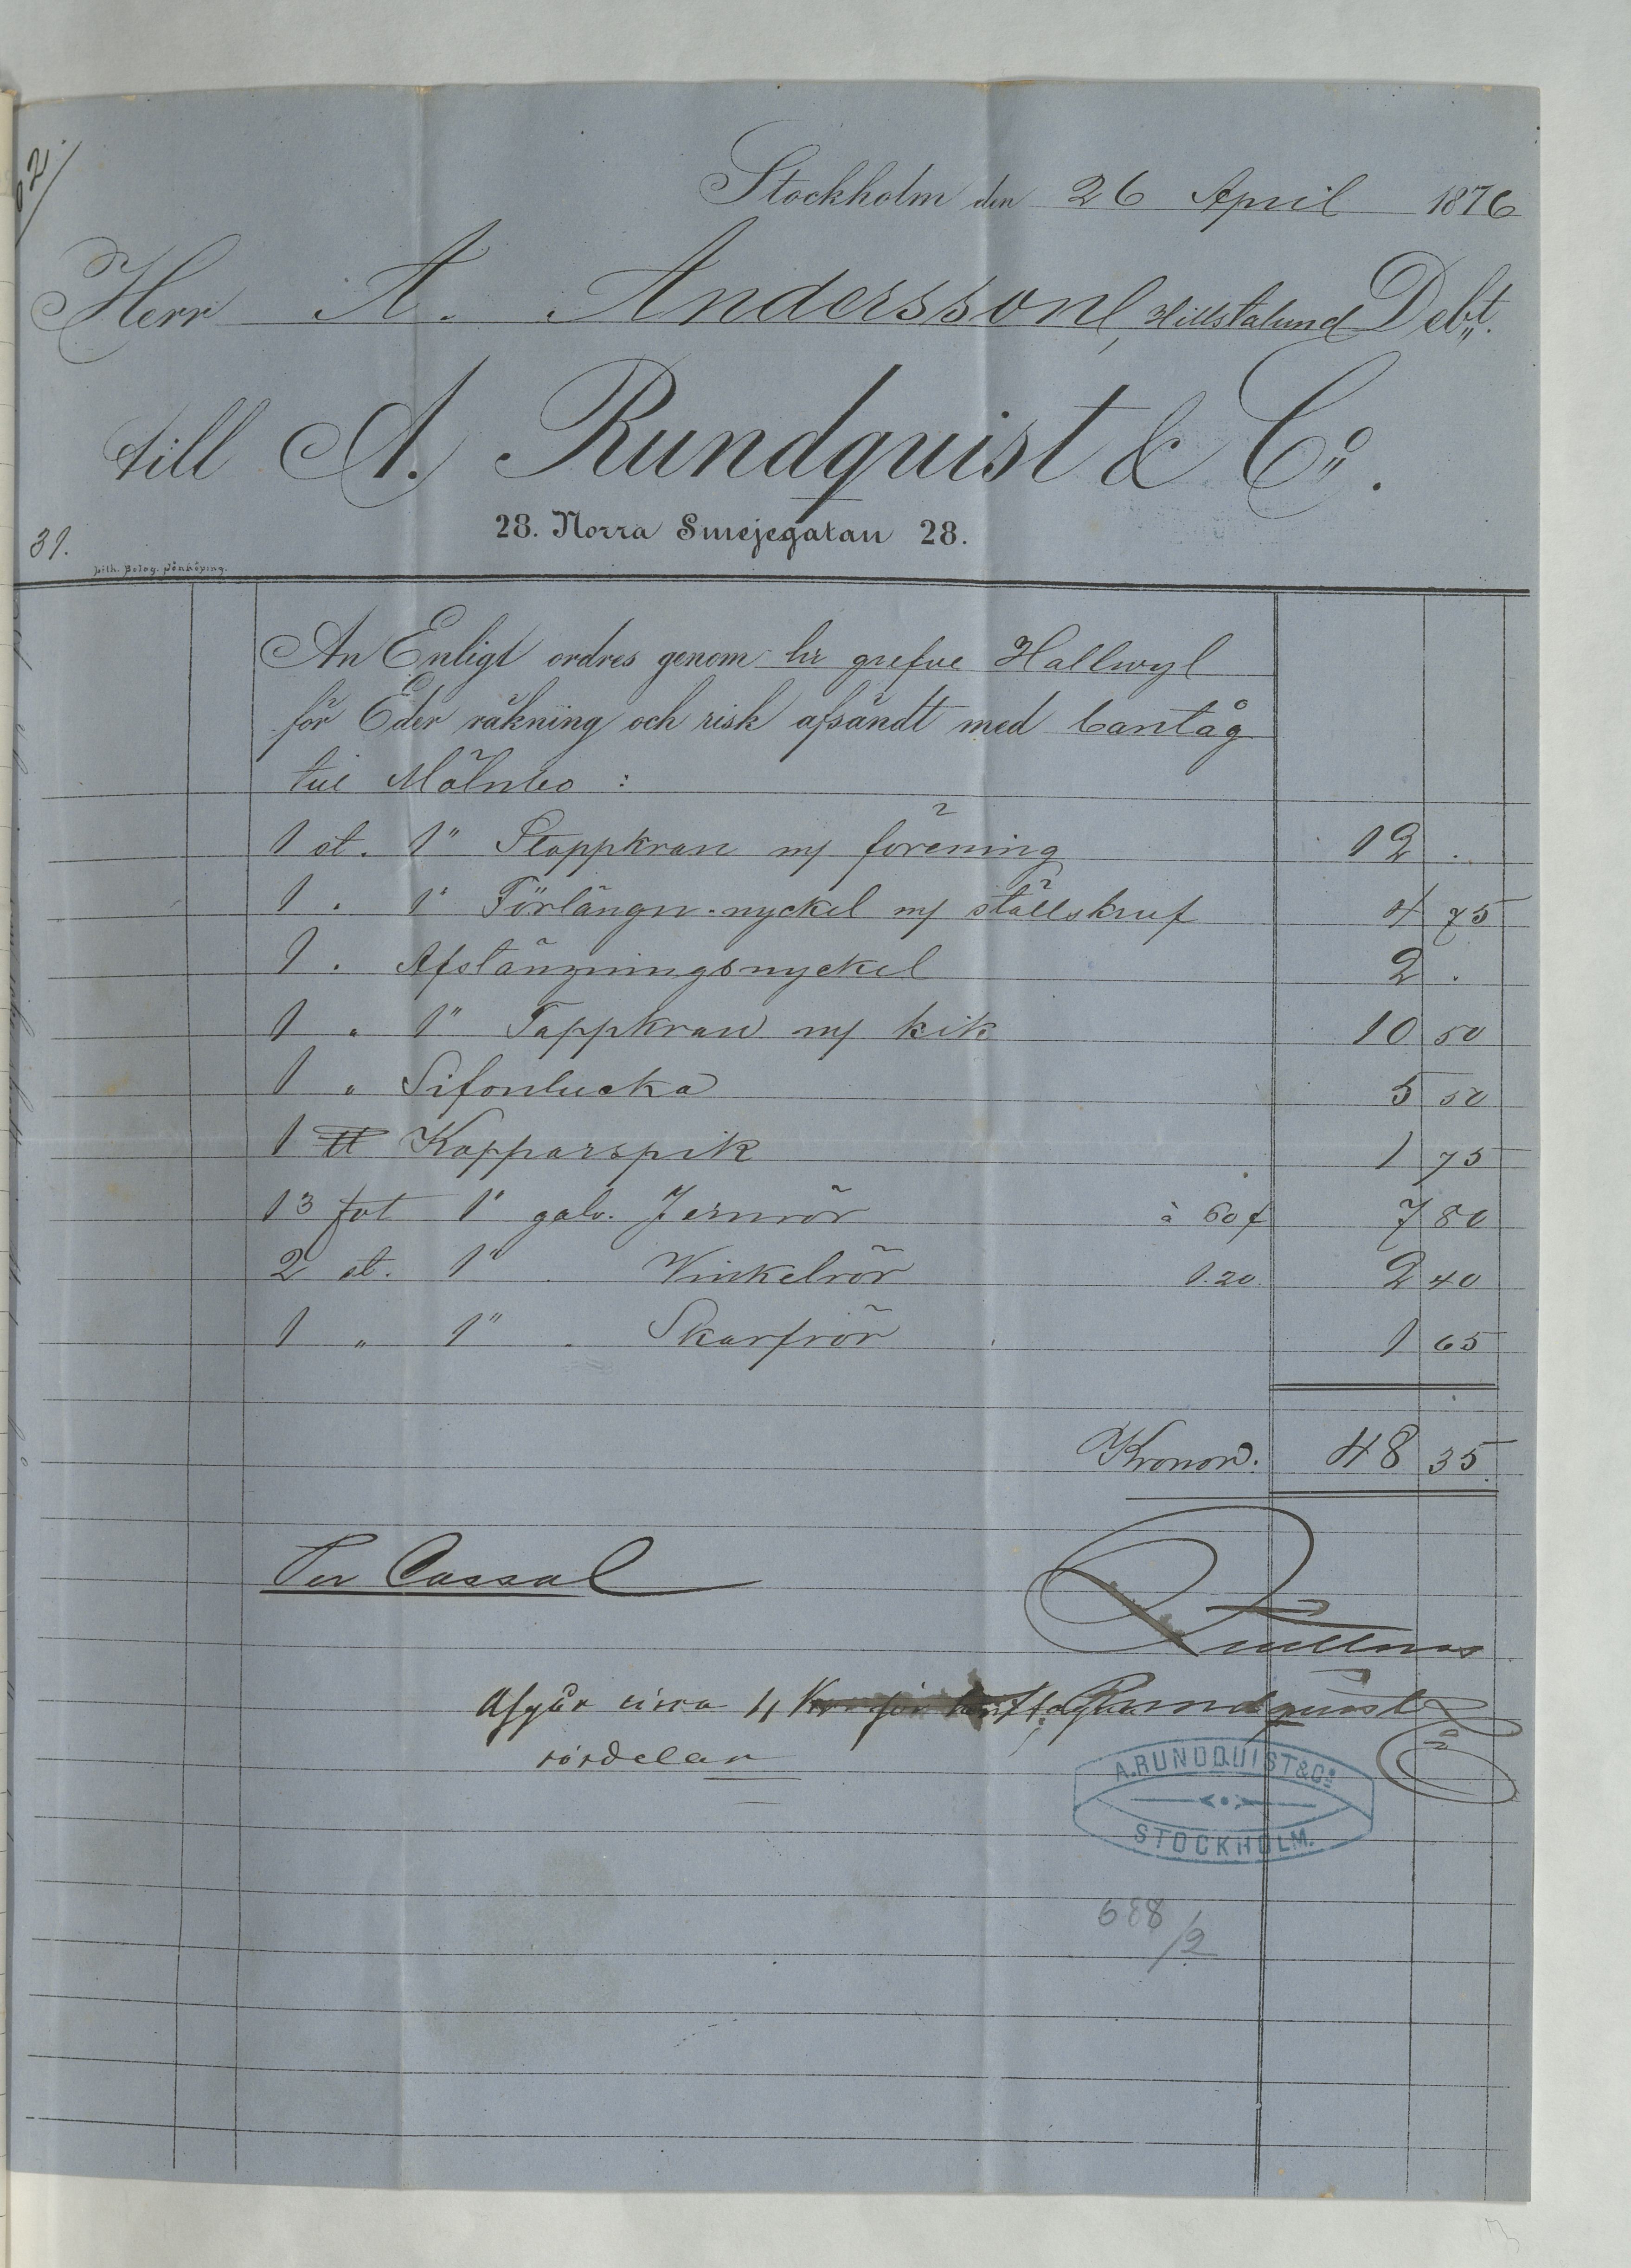 62.
Stockholm den 26 April 1876
Herr A. Andersson, Hillstalund Debt.
till A. Rundquist & Co.
28. Norra Smejegatan 28.
31.
Lith. Bolag. Jönköping.
An Enligt ordres genom hr grefve Hallwyl
för Eder räkning och risk afsändt med bantåg
till Mölnbo :
1 st. 1" Stoppkran m/ förening 12 .
1 . 1" Förlängn. nyckel m/ ställskruf 4 75
1 . Afstängningsnyckel 2 .
1 " 1" Tappkran m/ kik 10 50
1 " Sifonlucka 5 50
1 ℔ Kopparspik 1 75
13 fot 1" galv. Jernrör à 60 f 7 80
2 st. 1" . Vinkelrör 1.20. 2 40
1 " 1" . Skarfrör 1 65
Kronor. 48 35.
Per Cassa
Quitteras
Afgår cirka 4 Kr för
rördelar
A Rundquist & Co
A. RUNDQUIST & Co.
STOCKHOLM.
688/2